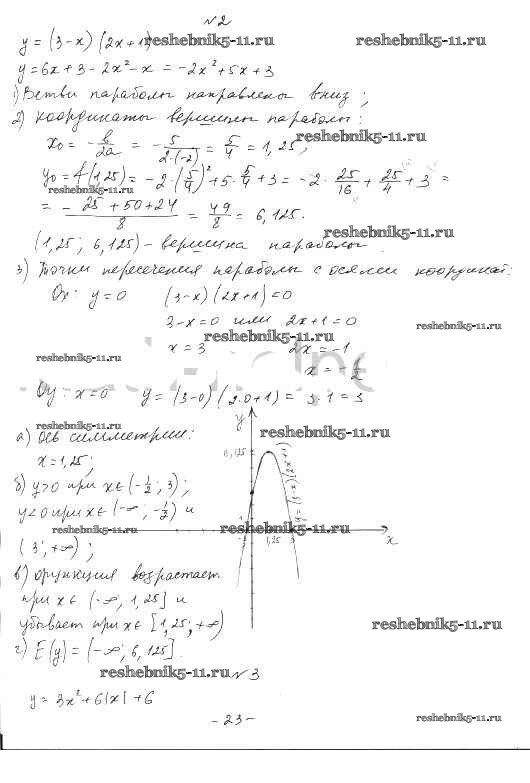 №2
y = (3-x)(2x+1)
reshebnik5-11.ru reshebnik5-11.ru
y = 6x + 3 - 2x² - x = -2x² + 5x + 3
1) Ветви параболы направлены вниз;
2) координаты вершины параболы:
reshebnik5-11.ru
x₀ = -b/2a = -5/(2·(-2)) = 5/4 = 1,25;
y₀ = f(1,25) = -2·(5/4)² + 5·5/4 + 3 = -2·25/16 + 25/4 + 3 =
reshebnik5-11.ru
= (-25+50+24)/8 = 49/8 = 6,125.
reshebnik5-11.ru
(1,25; 6,125) - вершина параболы
3) Точки пересечения параболы с осями координат:
Ox: y=0 (3-x)(2x+1)=0
3-x=0 или 2x+1=0
reshebnik5-11.ru
reshebnik5-11.ru
reshebnik5-11.ru
x=3 2x=-1
x=-1/2
Oy: x=0 y = (3-0)(2·0+1) = 3·1 = 3
reshebnik5-11.ru
reshebnik5-11.ru
а) ось симметрии:
x=1,25;
б) y>0 при x∈(-1/2; 3);
y<0 при x∈(-∞; -1/2) и
reshebnik5-11.ru
reshebnik5-11.ru
(3; +∞);
в) функция возрастает
при x∈(-∞, 1,25] и
убывает при x∈[1,25; +∞)
г) E(y) = (-∞; 6,125].
y
6,125
y=(3-x)(2x+1)
-1/2 1,25 3 x
reshebnik5-11.ru
reshebnik5-11.ru
№3
y = 3x² + 6|x| + 6
- 23 -
reshebnik5-11.ru